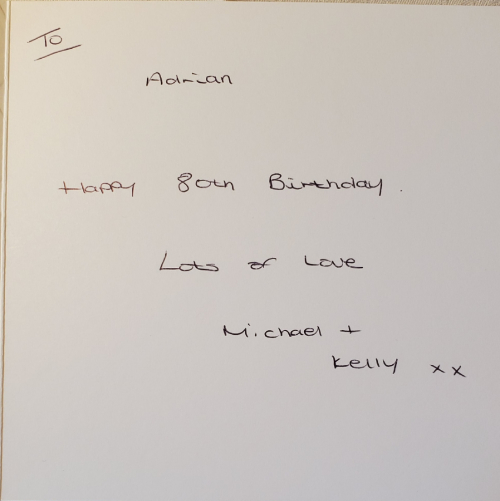 To
Adrian
Happy 80th Birthday.
Lots of Love
Michael +
Kelly xx